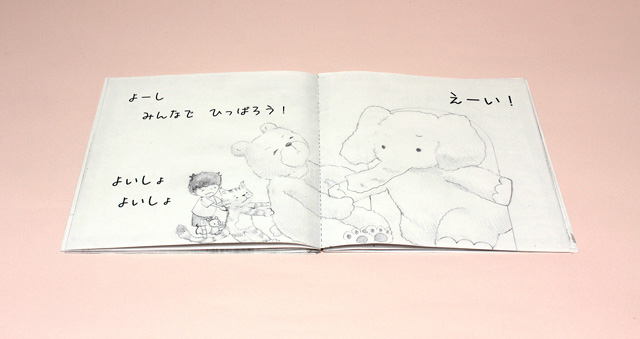 よーし
みんなで ひっぱろう！
よいしょ
よいしょ
えーい！